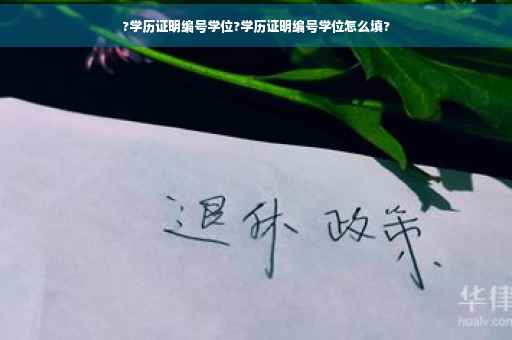 ?学历证明编号学位?学历证明编号学位怎么填?
退休 政策
华律
hualv.com